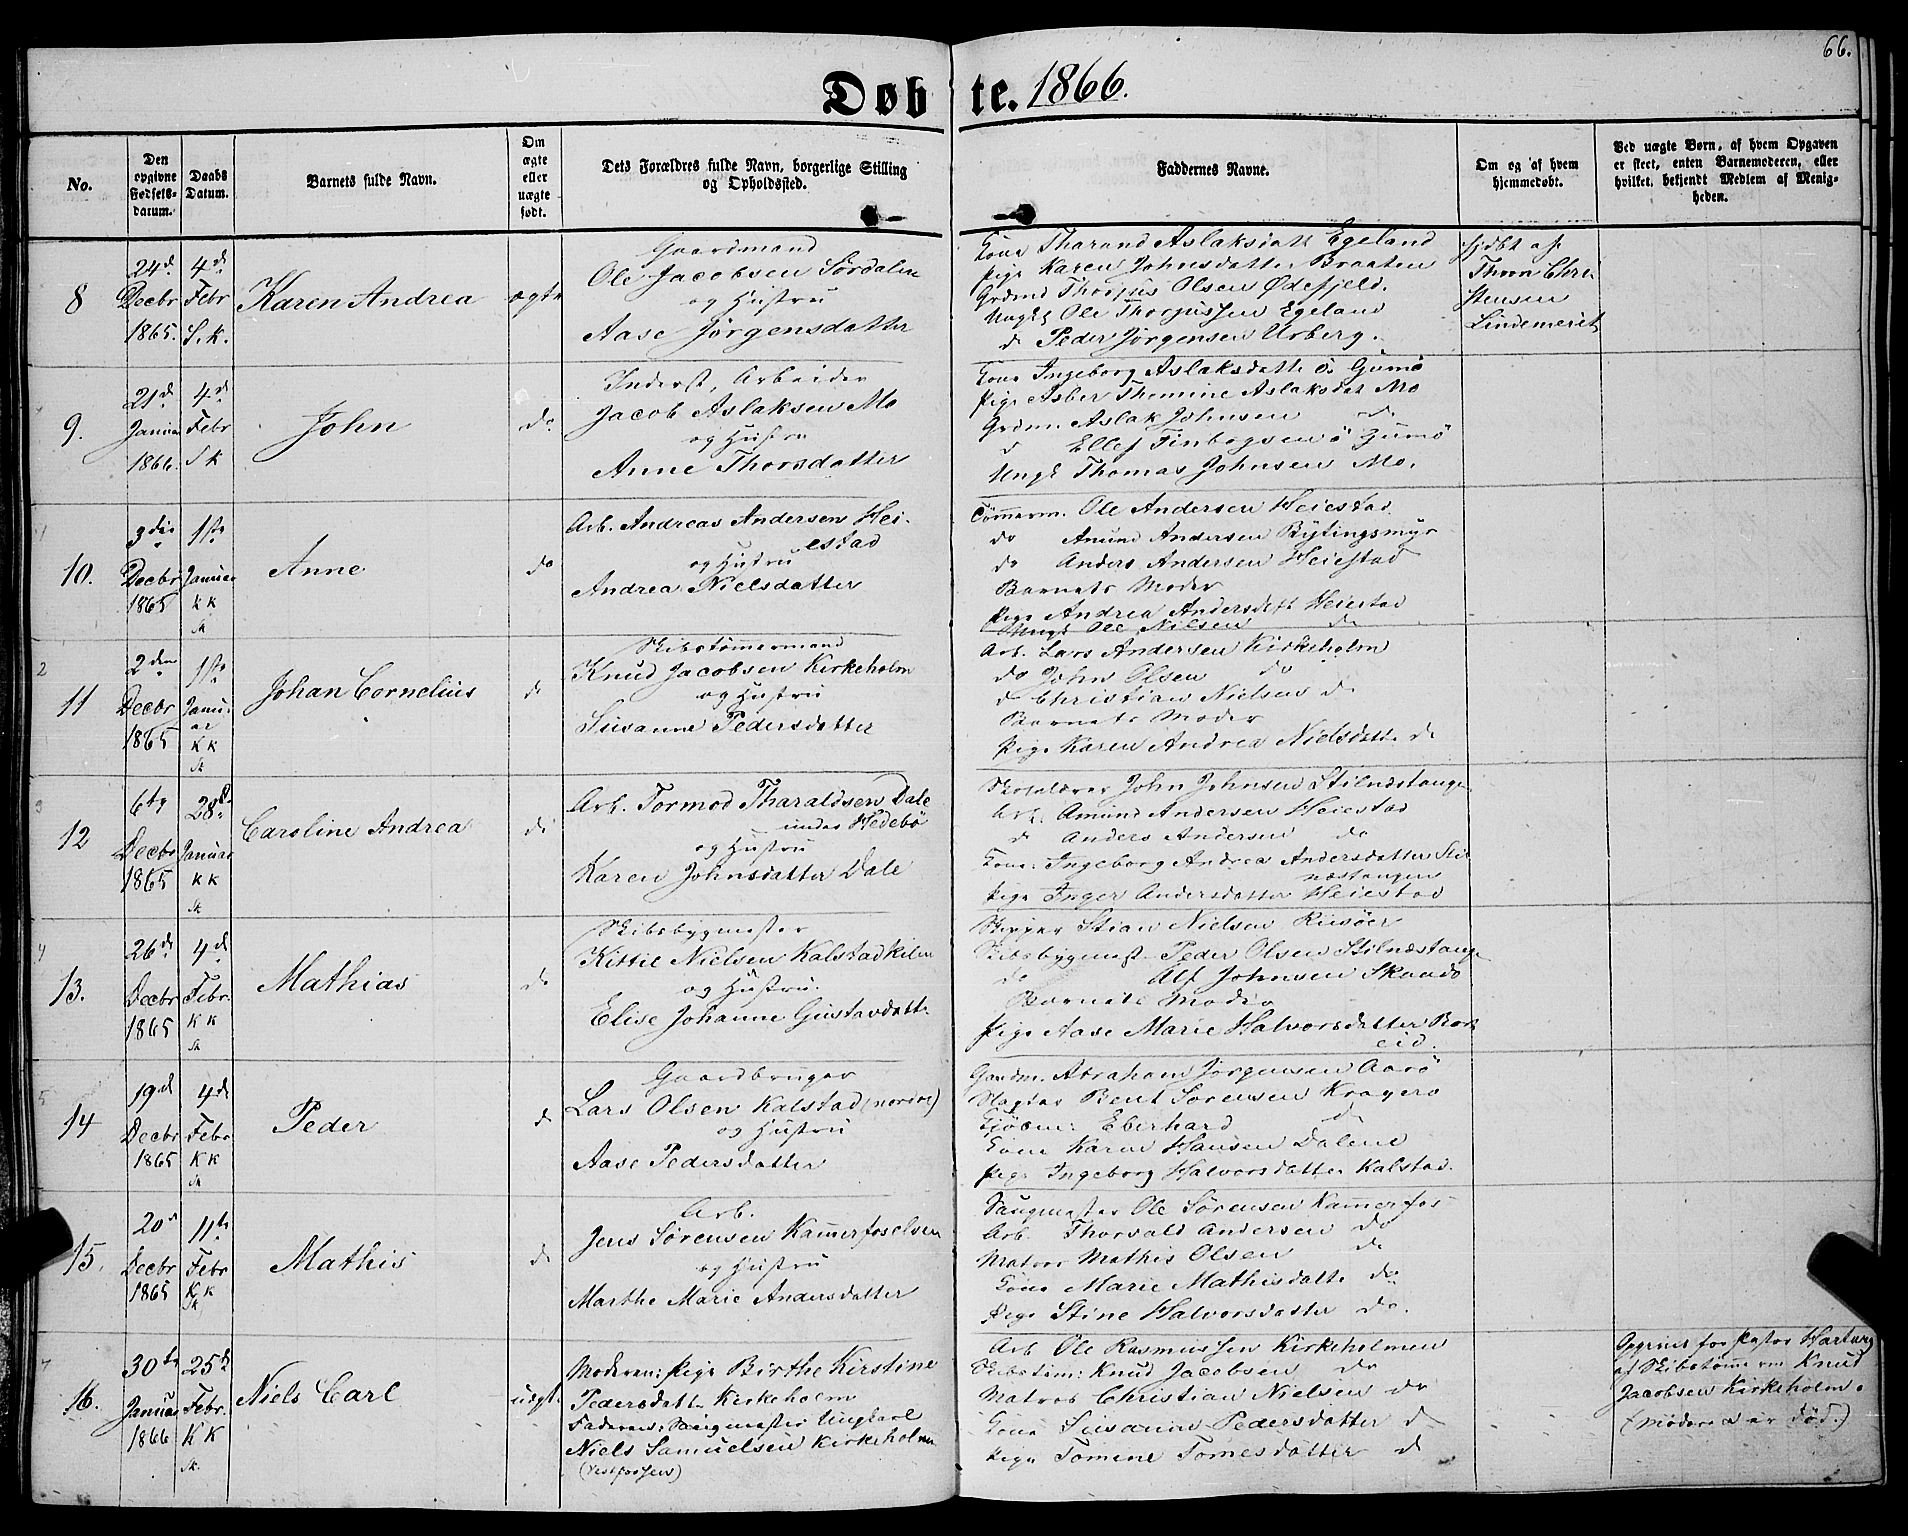 66.
Døbte. 1866.
No.
Den opgivne Fødsels-datum.
Daabs Datum.
Barnets fulde Navn.
Om ægte eller uægte født.
Dets Forældres fulde Navn, borgerlige Stilling og Opholdssted.
Faddernes Navne.
Om og af hvem hjemmedøbt.
Ved uægte Børn, af hvem Opgaven er skeet, enten Barnemoderen, eller hvilket, bekjendt Medlem af Menigheden.
8
24d Decbr 1865.
4d Febr S.k.
Karen Andrea
ægte
Gaardmand
Ole Jacobsen Sørdalen
og Hustru
Aase Jørgensdatter
Kone Tharand Aslaksdatt Egeland
Pige Karen Johnsdatter Braaten
Grdmd Thorjus Olsen Ødefjeld.
Ungk Ole Thorjussen Egeland
d Peder Jørgensen Urberg.
hjdbt af
Thorn Chri
stensen
Lindemeiet
9.
21d Januar 1866.
4d Febr S k
John
do
Inderst, Arbeider
Jacob Aslaksen Mo
og Hustru
Anne Thorsdatter
Kone Ingeborg Aslaksdatte ö Gumö
Pige Asber Themine Aslaksdat Mo
Grdm. Aslak Johnsen do
d Ellef Finbogsen ö Gumö
Ungk Thomas Johnsen Mo.
10.
3die Decbr 1865
1ste Januar kk
Sk
Anne
do
Arb. Andreas Andersen Hei-
estad
og Hustru
Andrea Nielsdatter
Tømmerm. Ole Andersen Heiestad
do Amund Andersen Bytingsmyr
do Anders Andersen Heiestad
Barnets Moder
Pige Andrea Andersdatt Heiestad
Ungk Ole Nilsen do
11
2den Decbr 1865
1ste Januar KK
Sk
Johan Cornelius
do
Skibstømmermand
Knud Jacobsen Kirkeholm
og Hustru
Susanne Pedersdatter
Arb. Lars Andersen Kirkeholm
do John Olsen do
d Christian Nielsen do
Barnets Moder
Pige Karen Andrea Nielsdatte do
12
6te Decbr 1865
28de Januar KK
Sk
Caroline Andrea
do
Arb. Tormod Tharaldsen Dale
under Hedebø
og Hustru
Karen Johnsdatter Dale
Skolelærer John Johnsen Stilnæstangen
Arb. Amund Andersen Heiestad
d Anders Andersen do
Kone Ingeborg Andrea Andersdatter Stil
næstangen
Pige Inger Andersdatter Heiestad
13.
26d Decbr 1865
4d Febr. KK
Sk
Mathias
do
Skibsbygmester
Kittil Nielsen Kalstadkilen
og Hustru.
Elise Johanne Gustavdatt.
Skipper Stian Nielsen Riisöer
Skibsbygmest Peder Olsen Stilnæstange
do Alf Johnsen Skaadö
Barnets Moder
Pige Aase Marie Halvorsdatter Bor
eid.
14
19d Decbr 1865
4d Febr KK
Sk
Peder
d
Gaardbruger
Lars Olsen Kalstad (nordre)
og Hustru
Aase Pedersdatter
Gaardm. Abraham Jörgensen Aarö
Slagter Bent Sørensen Kragerø
Kjøbm: Eberhard do
Kone Karen Hansen Dalene
Pige Ingeborg Halvorsdatter Kalstad.
15.
20d Decbr 1865
11te Febr K.k
Sk
Mathis
do
Arb.
Jens Sørensen Kammerfoselven
og Hustru
Marthe Marie Andersdatter
Saugmester Ole Sørensen Kammerfos
Arb. Thorvald Andersen do
Matros Mathis Olsen do
Kone Marie Mathisdatte do
Pige Stine Halvorsdatter do.
16.
30te Januar 1866
25de Febr. KK
Sk.
Niels Carl
uægt.
Moderen: Pige Birthe Kirstine
Pedersdatt. Kirkeholm
Faderen: Saugmester Ungkarl
Niels Samuelsen Kirkeholmen
(Vestfossen)
Arb Ole Rasmussen Kirkeholmen
Skibstøm: Knud Jacobsen do
Matros Christian Nielsen do
Kone Susanne Pedersdatter d
Pige Tomine Tomesdatter d
Opgivet for Pastor Hartung
af Skibstømmerm Knud
Jacobsen Kirkeholm.
(Moderen er död.)